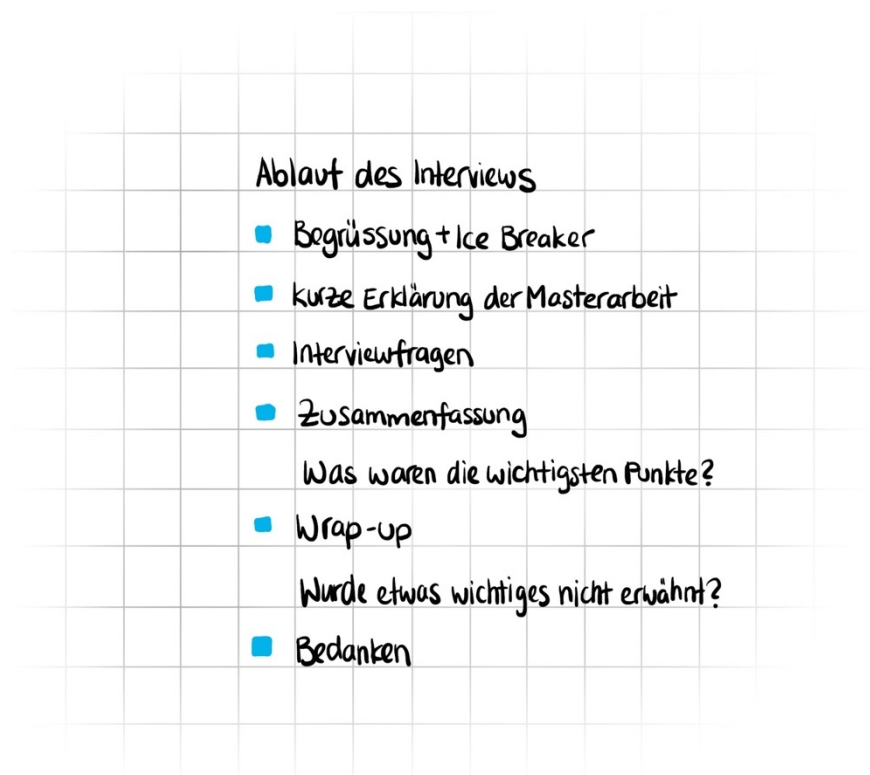 Ablauf des Interviews
Begrüssung + Ice Breaker
kurze Erklärung der Masterarbeit
Interviewfragen
Zusammenfassung
Was waren die wichtigsten Punkte?
Wrap-up
Wurde etwas wichtiges nicht erwähnt?
Bedanken